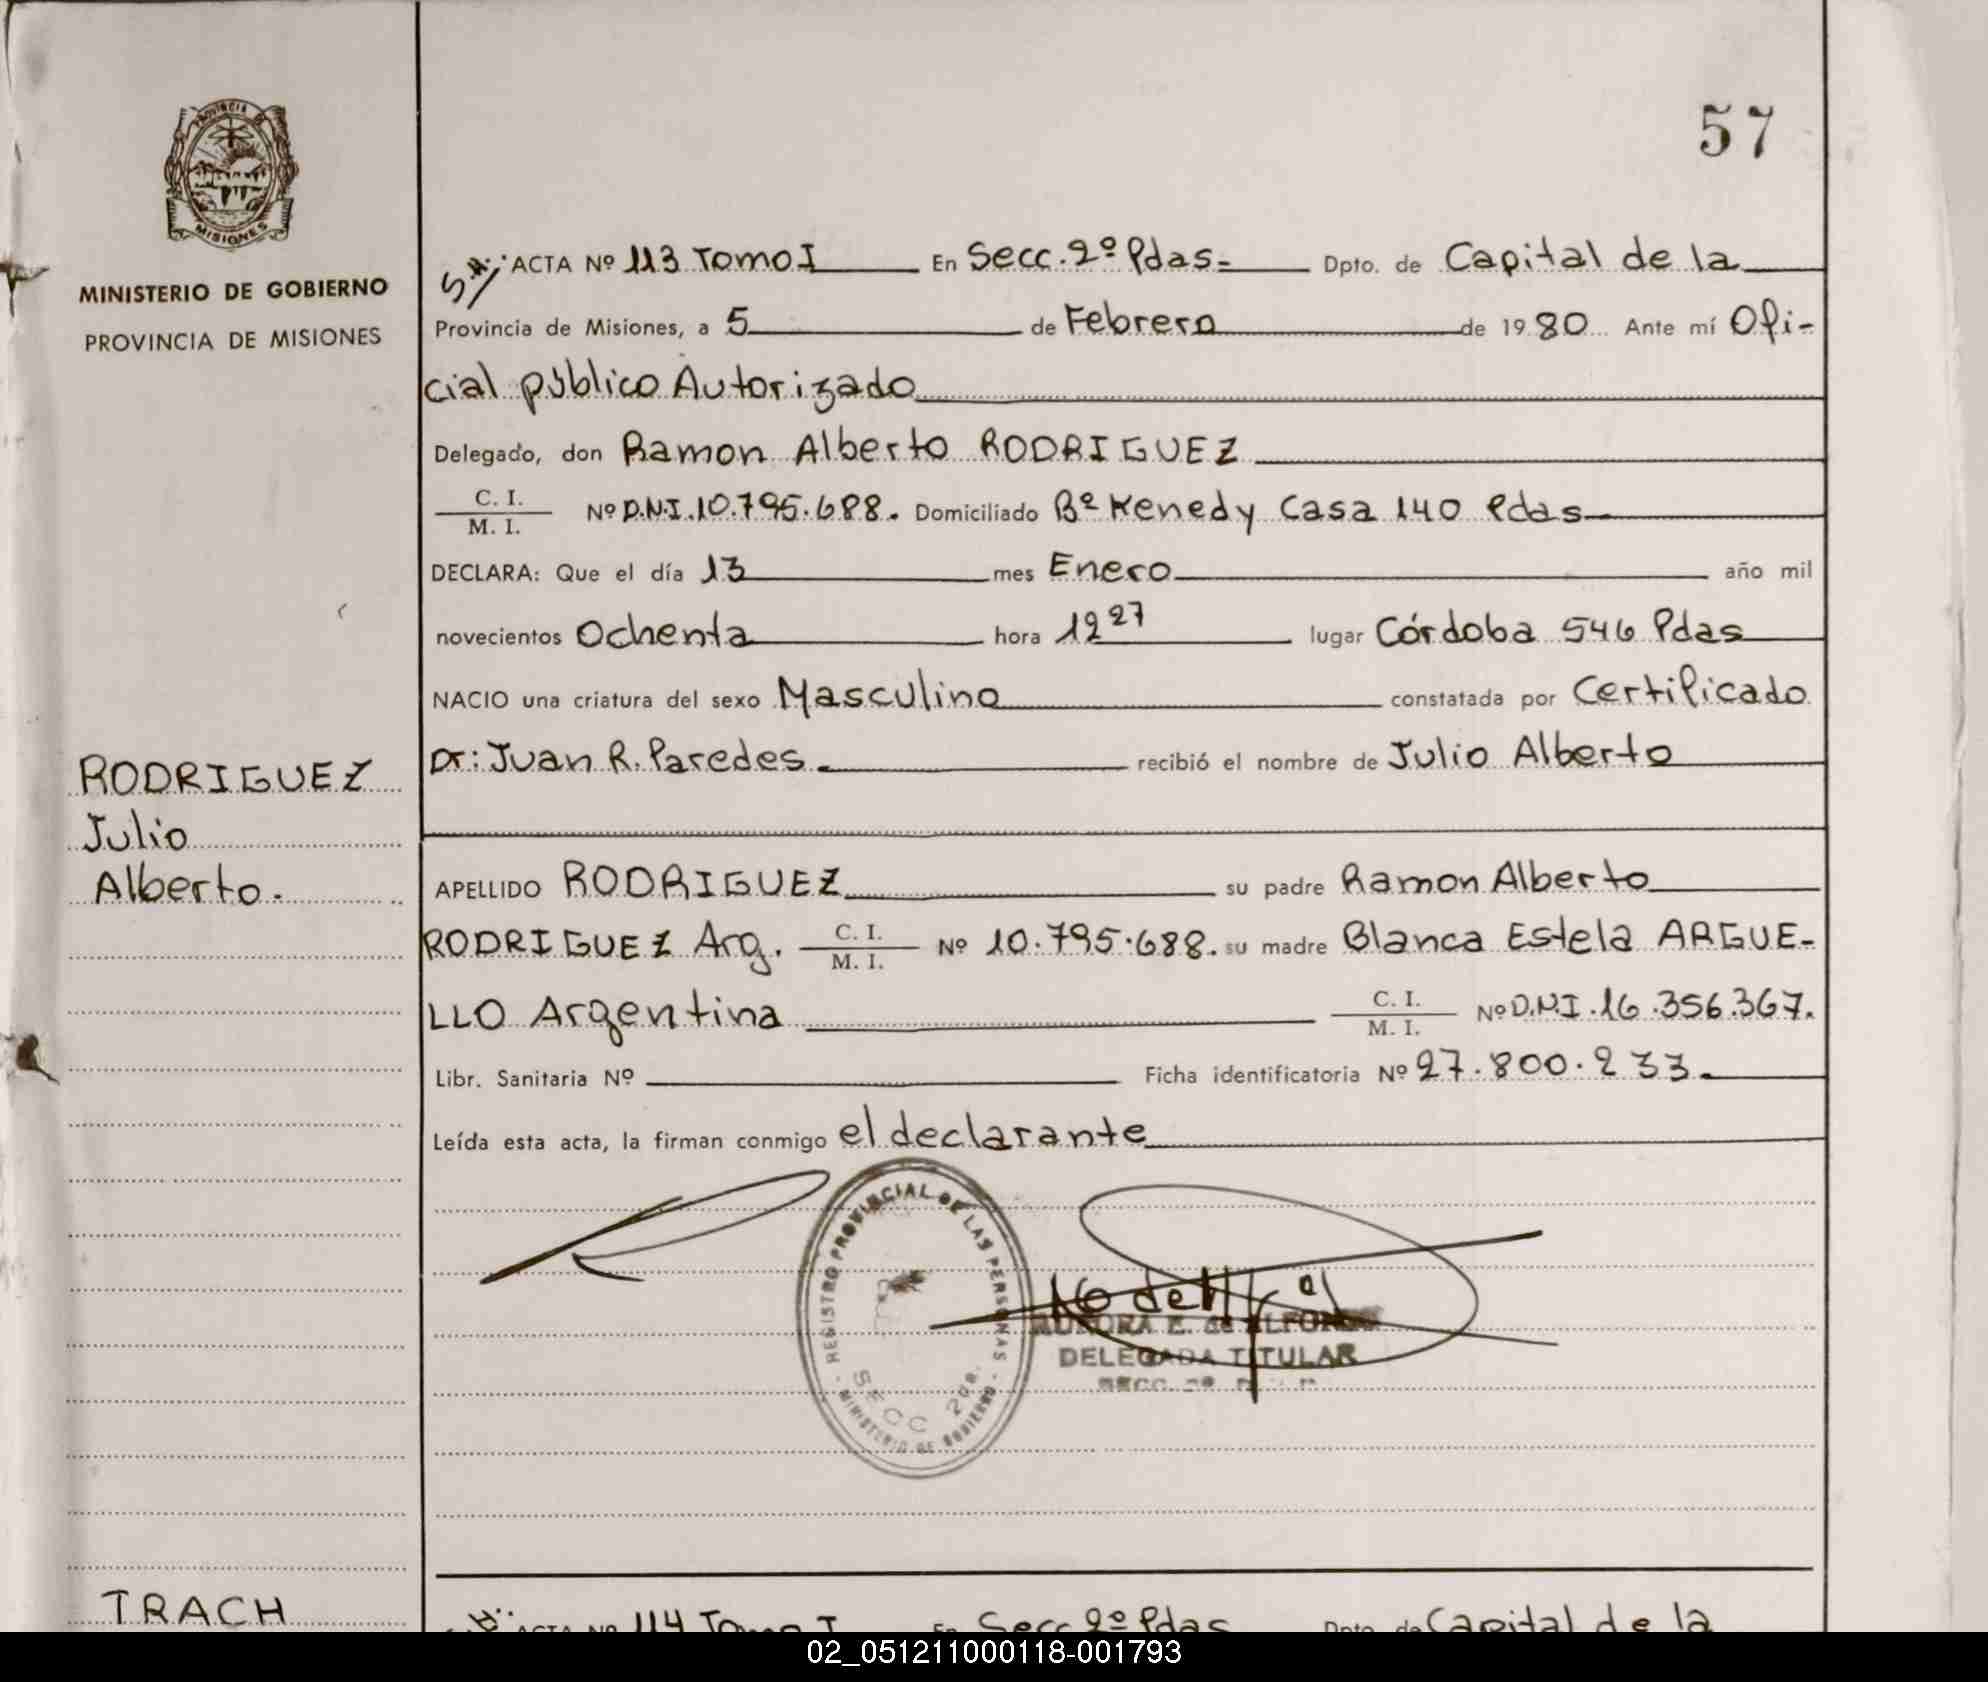 57
PROVINCIA DE
MISIONES
MINISTERIO DE GOBIERNO
PROVINCIA DE MISIONES
ACTA Nº 113 Tomo I En Secc. 2º Pdas= Dpto. de Capital de la
Provincia de Misiones, a 5 de Febrero de 1980 Ante mí Ofi-
cial público Autorizado
Delegado, don Ramon Alberto RODRIGUEZ
C. I.
M. I. Nº D.N.I. 10.795.688. Domiciliado Bº Kenedy Casa 140 Pdas
DECLARA: Que el día 13 mes Enero año mil
novecientos Ochenta hora 12 27 lugar Córdoba 546 Pdas
NACIO una criatura del sexo Masculino constatada por Certificado
Dr: Juan R. Paredes. recibió el nombre de Julio Alberto
RODRIGUEZ
Julio
Alberto.
APELLIDO RODRIGUEZ su padre Ramon Alberto
RODRIGUEZ Arg. C. I. M. I. Nº 10.795.688. su madre Blanca Estela ARGUE-
LLO Argentina C. I. M. I. Nº D.N.I. 16.356.367.
Libr. Sanitaria Nº Ficha identificatoria Nº 27.800.233.
Leída esta acta, la firman conmigo el declarante
REGISTRO PROVINCIAL DE LAS PERSONAS
SECC 2da.
MINISTERIO DE GOBIERNO
AURORA E. de ALFONSO
DELEGADA TITULAR
TRACH
ACTA Nº 114 Tomo I En Secc 2º Pdas Dpto. de Capital de la
02_051211000118-001793